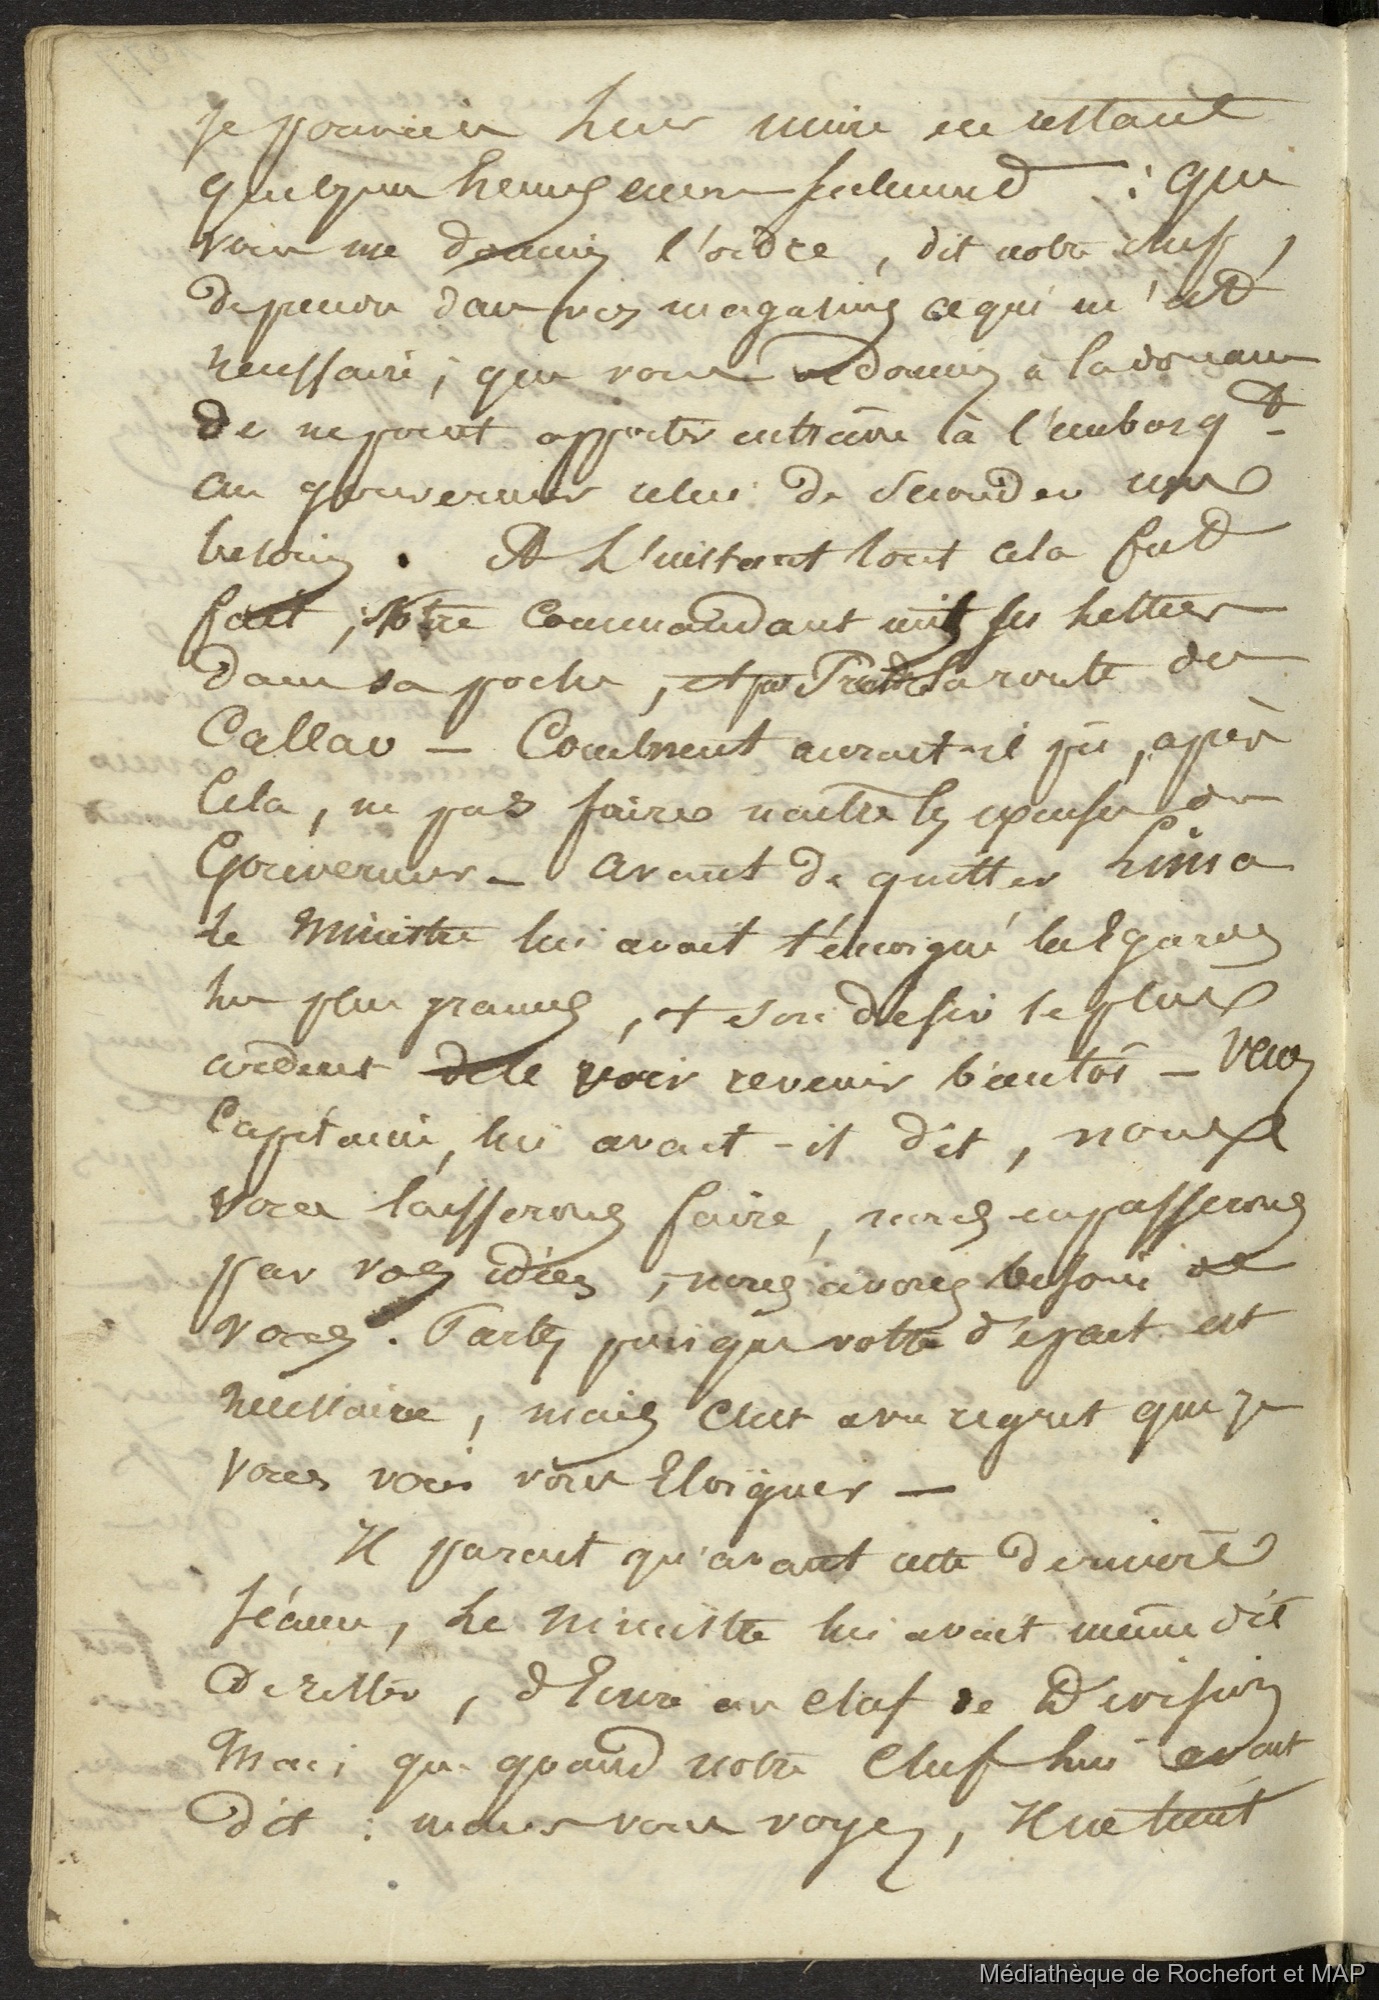 je pourrais leur nuire en restant
quelques heures encore seulement : que
vous me donniez l'ordre, dit notre chef,
de prendre dans vos magasins ce qui m'est
necessaire ; que vous le donniez à la douane
de ne point apporter entrave à l'embarqt
au gouverneur celui de seconder mes
besoins. A L'instant tout cela fut
fait ; Notre Commandant mit ses lettres
dans sa poche, et prit la route du
Callao — Comment aurait-il pû, après
Cela, ne pas faire naitre les excuses du
Gouverneur — avant de quitter Lima
le Ministre lui avait témoigné les Egards
les plus grands, et son desir le plus
ardent de le voir revenir bientôt — Venez
Capitaine, lui avait-il dit, nous
vous laisserons faire, nous en passerons
par vos idées, nous avons besoin de
vous. Partez puisque votre départ est
necessaire, mais c'est avec regret que je
vous vois vous Eloigner —
Il parait qu'avant cette derniere
séance, Le Ministre lui avait même dit
de rester, d'Ecrire au chef de Division
Mais que quand notre Chef lui avait
dit : mais vous voyez, Il ne tient
Médiathèque de Rochefort et MAP